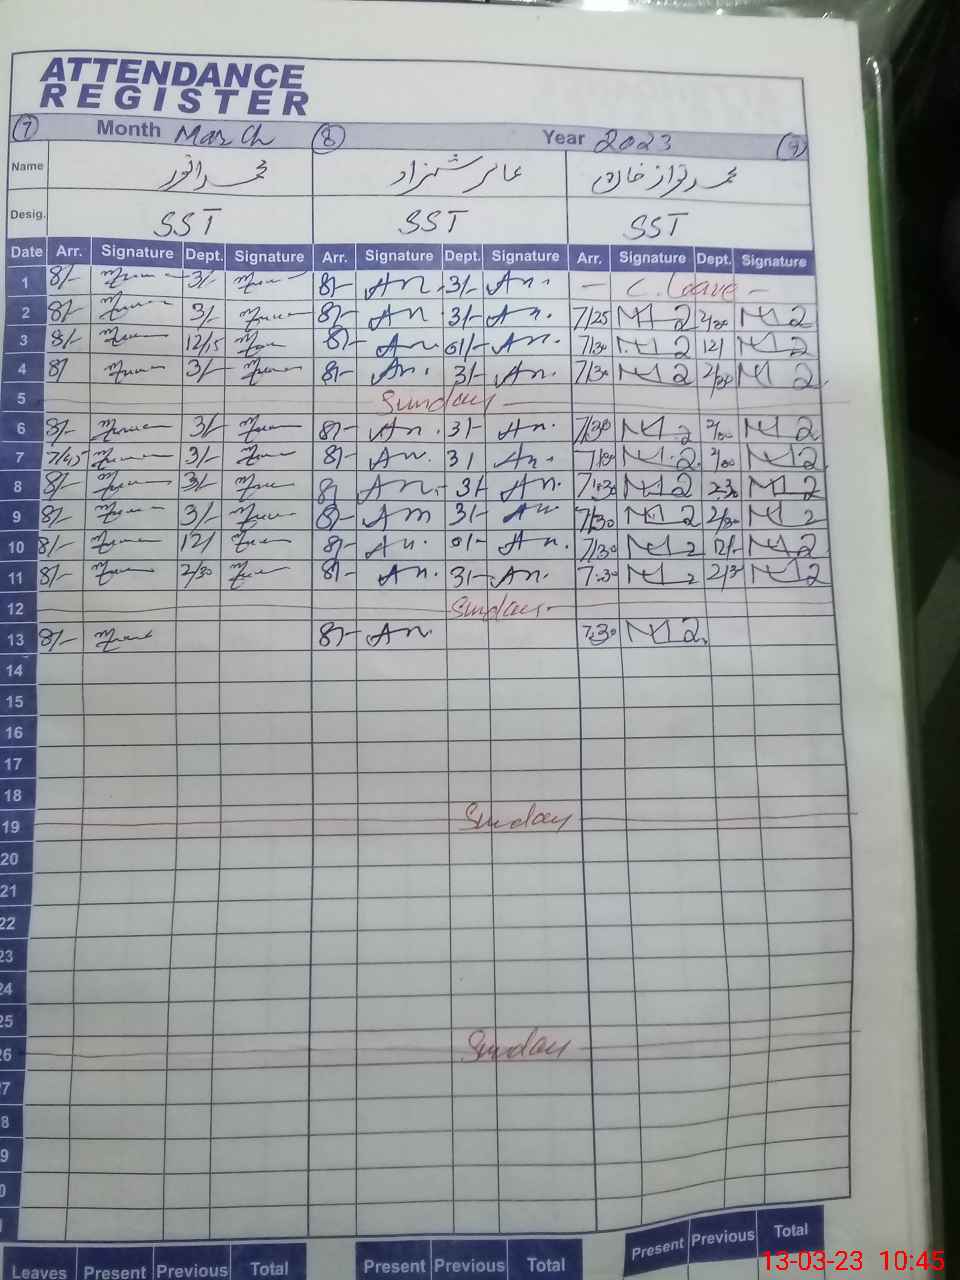 ATTENDANCE
REGISTER
7 Month March 8 Year 2023 9
Name محمد انور عامر شہزاد محمد نواز خان
Desig. SST SST SST
Date Arr. Signature Dept. Signature Arr. Signature Dept. Signature Arr. Signature Dept. Signature
1 8/- 3/- 8/- An. 3/- An. - C. Leave -
2 8/- 3/- 8/- An 3/- An. 7/25
3 8/- 12/15 8/- An 01/- An. 7/30 12/
4 8/ 3/- 8/- An. 3/- An. 7/30 2/30
5 Sunday
6 8/- 3/- 8/- An. 3/- An. 7/30 2/00
7 7/45 3/- 8/- An. 3/ An. 2/00
8 8/- 3/- 8/ An. 3/- An. 7:30 2:30
9 8/- 3/- 8/- An 3/- An 7/30 2/30
10 8/- 12/ 8/- An. 01- An. 7/30 12/-
11 8/- 2/30 8/- An. 3/- An. 7:30 2/3
12 Sunday
13 8/- 8/- An. 7:30
14
15
16
17
18
19 Sunday
20
21
22
23
24
25
26 Sunday
7
8
9
0
Leaves Present Previous Total Present Previous Total Present Previous Total
13-03-23 10:45